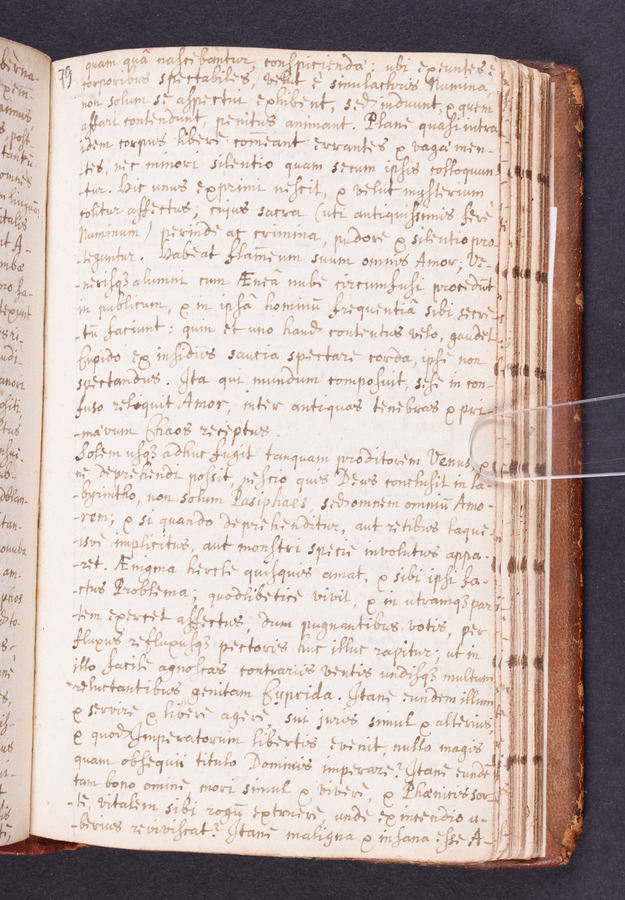 79
quam quâ nascebantur, conspicienda: ubi exeuntes è
corporibus spectabiles, velut è simulachris Numina,
non solum se aspectui exhibent, sed induunt, & quem
affari contendunt, penitus animant. Plane quasi intra
idem corpus liberè com̄eant errantes & vagæ men-
-tes, nec minori silentio quam secum ipsis colloquun
-tur. Hic unus exprimi nescit, & velut mysterium
colitur affectus; cujus sacra (uti antiquissimis ferè
Numinum) perinde ac crimina, pudore & silentio pro
-teguntur. Habeat flam̄eum suum omnis Amor; Ve-
-nerisq; alumni cum Ænea nube circumfusi procedut
in publicum, & in ipsâ hominū frequentiâ sibi secre
-tū faciunt: quin et uno haud contentus velo, gaudet
Cupido ex insidiis saucia spectare corda, ipse non
spectandus. Ita qui mundum composuit, sese in con-
fuso reliquit Amor, inter antiquas tenebras & pri
-mævum Chaos receptus.
Solem usq; adhuc fugit tanquam proditorem Venus, &
nè deprehendi possit, nescio quis Deus conclusit in la-
-byrintho, non solum Pasiphaes, sed omnem omniū Amo-
-rem; & si quando deprehenditur, aut retibus laque-
-isve implicitus, aut monstri specie involutus appa-
-ret. Ænigma hercle quisquis amat, & sibi ipsi fa-
-ctus Problema; quodlibetice vivit, & in utramq; par
-tem exercet affectus, dum pugnantibus votis, per
fluxus refluxusq; pectoris huc illuc rapitur; ut in
illo facile agnoscas contrariis ventis undisq; multum
reluctantibus genitam Cyprida. Itane eundem illum
& servire & liberè agere, sui juris simul & alterius,
& quod Imperatorum libertis evenit, nullo magis
quam obsequii titulo Dominis imperare? Itane eundē
tam bono omine mori simul & vivere, & Phœnicis sor
-te, vitalem sibi rogū extruere, unde ex incendio u-
-berius reviviscat? Itane maligna & insana esse A-